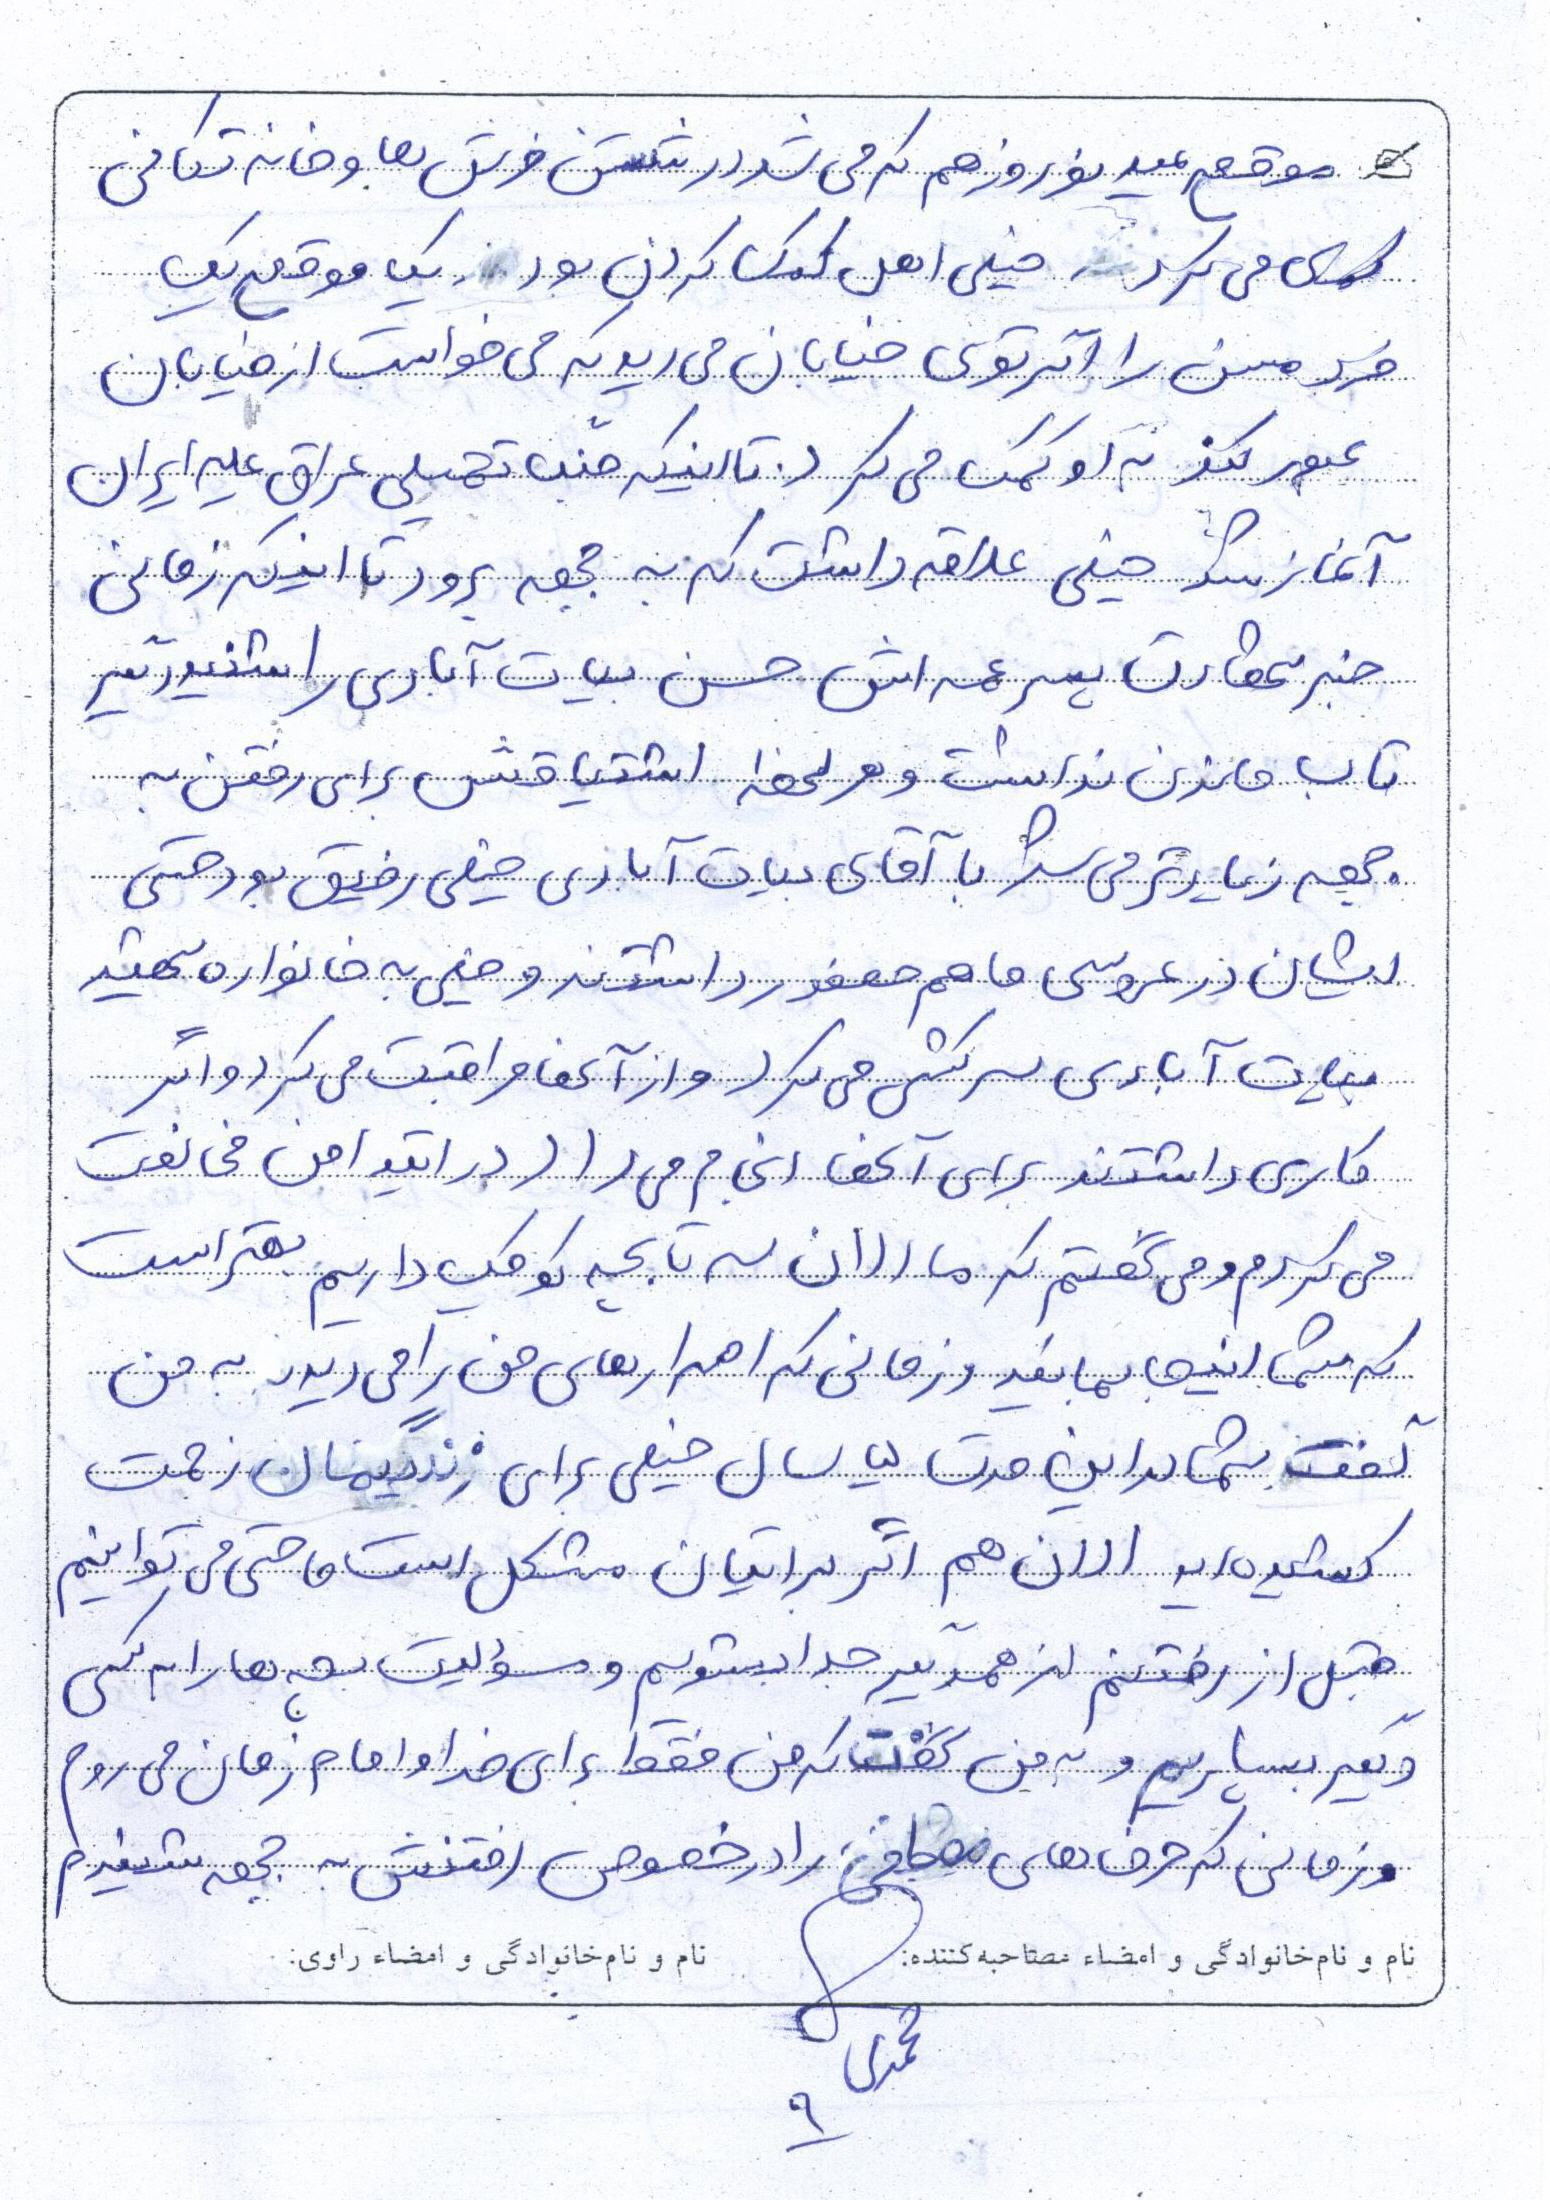 موقع عید نوروز هم که می شد در شستن فرش ها و خانه تکانی
کمک می کرد خیلی اهل کمک کردن بود. یک موقع یک
فرد مسن را اگر توی خیابان می دید که می خواست از خیابان
عبور کند به او کمک می کرد. تا اینکه جنگ تحمیلی عراق علیه ایران
آغاز شد خیلی علاقه داشت که به جبهه برود تا اینکه زمانی
خبر شهادت پسر عمه اش حسن بیات آبادی را شنید دیگر
تاب ماندن نداشت و هر لحظه اشتیاقش برای رفتن به
جبهه زیادتر می شد با آقای بیات آبادی خیلی رفیق بود حتی
ایشان در عروسی ما هم حضور داشتند و خیلی به خانواده شهید
بیات آبادی سرکشی می کرد و از آنها مراقبت می کرد و اگر
کاری داشتند برای آنها انجام می داد در ابتدا من مخالفت
می کردم و می گفتم که ما الان سه تا بچه کوچک داریم بهتر است
که شما اینجا بمانید و زمانی که اصرارهای من را می دید به من
گفت شما در این مدت سال خیلی برای زندگیمان زحمت
کشیده اید الان هم اگر برایتان مشکل است ما حتی می توانیم
قبل از رفتنم از همدیگر جدا بشویم و مسؤلیت بچه ها را به کسی
دیگر بسپاریم و به من گفت که من فقط برای خدا و امام زمان می روم
و زمانی که حرف های را در خصوص رفتنش به جبهه شنیدم
نام و نام‌خانوادگی و امضاء مصاحبه‌کننده: نام و نام‌خانوادگی و امضاء راوی:
محمدی
۹